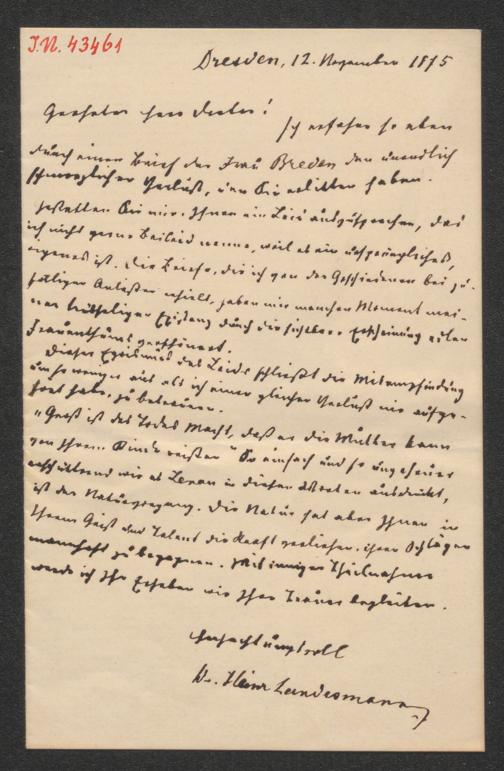 J.N. 43461
Dresden, 12. November 1875
Geehrter Herr Doctor!
Ich erfahre so eben
durch einen Brief der Frau Breden den unendlich
schmerzlichen Verlust, den Sie erlitten haben.
Gestatten Sie mir, Ihnen ein Leid auszusprechen, das
ich nicht gerne Beileid nenne, weil es ein ursprüngliches,
eigenes ist. Die Briefe, die ich von der Geschiedenen bei zu-
fälligen Anlässen erhielt, haben mir manchen Moment mei-
ner trübseligen Existenz durch die sichtbare Erscheinung edlen
Frauenthums verschönert.
Dieser Egoismus des Leids schließt die Mitempfindung
um so weniger aus als ich einen gleichen Verlust nie aufge-
hört habe, zu betrauern.
"Groß ist des Todes Macht, daß er die Mutter kann
von ihrem Kinde reißen" So einfach und so ungeheuer
erschütternd wie es Lenau in diesen Worten ausdrückt,
ist der Naturvorgang. Die Natur hat aber Ihnen in
Ihrem Geist und Talent die Kraft verliehen, ihren Schlägen
mannhaft zu begegnen. Mit inniger Theilnahme
werde ich Ihr Erheben wie Ihre Trauer begleiten.
Hochachtungsvoll
Dr. Heinr Landesmann